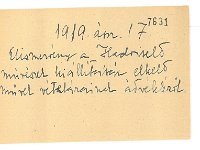 1919. ápr. 17
7631
Elismervény a Hadviselő
művészek kiállításán elkelő
művek vételárainak átvételéről.